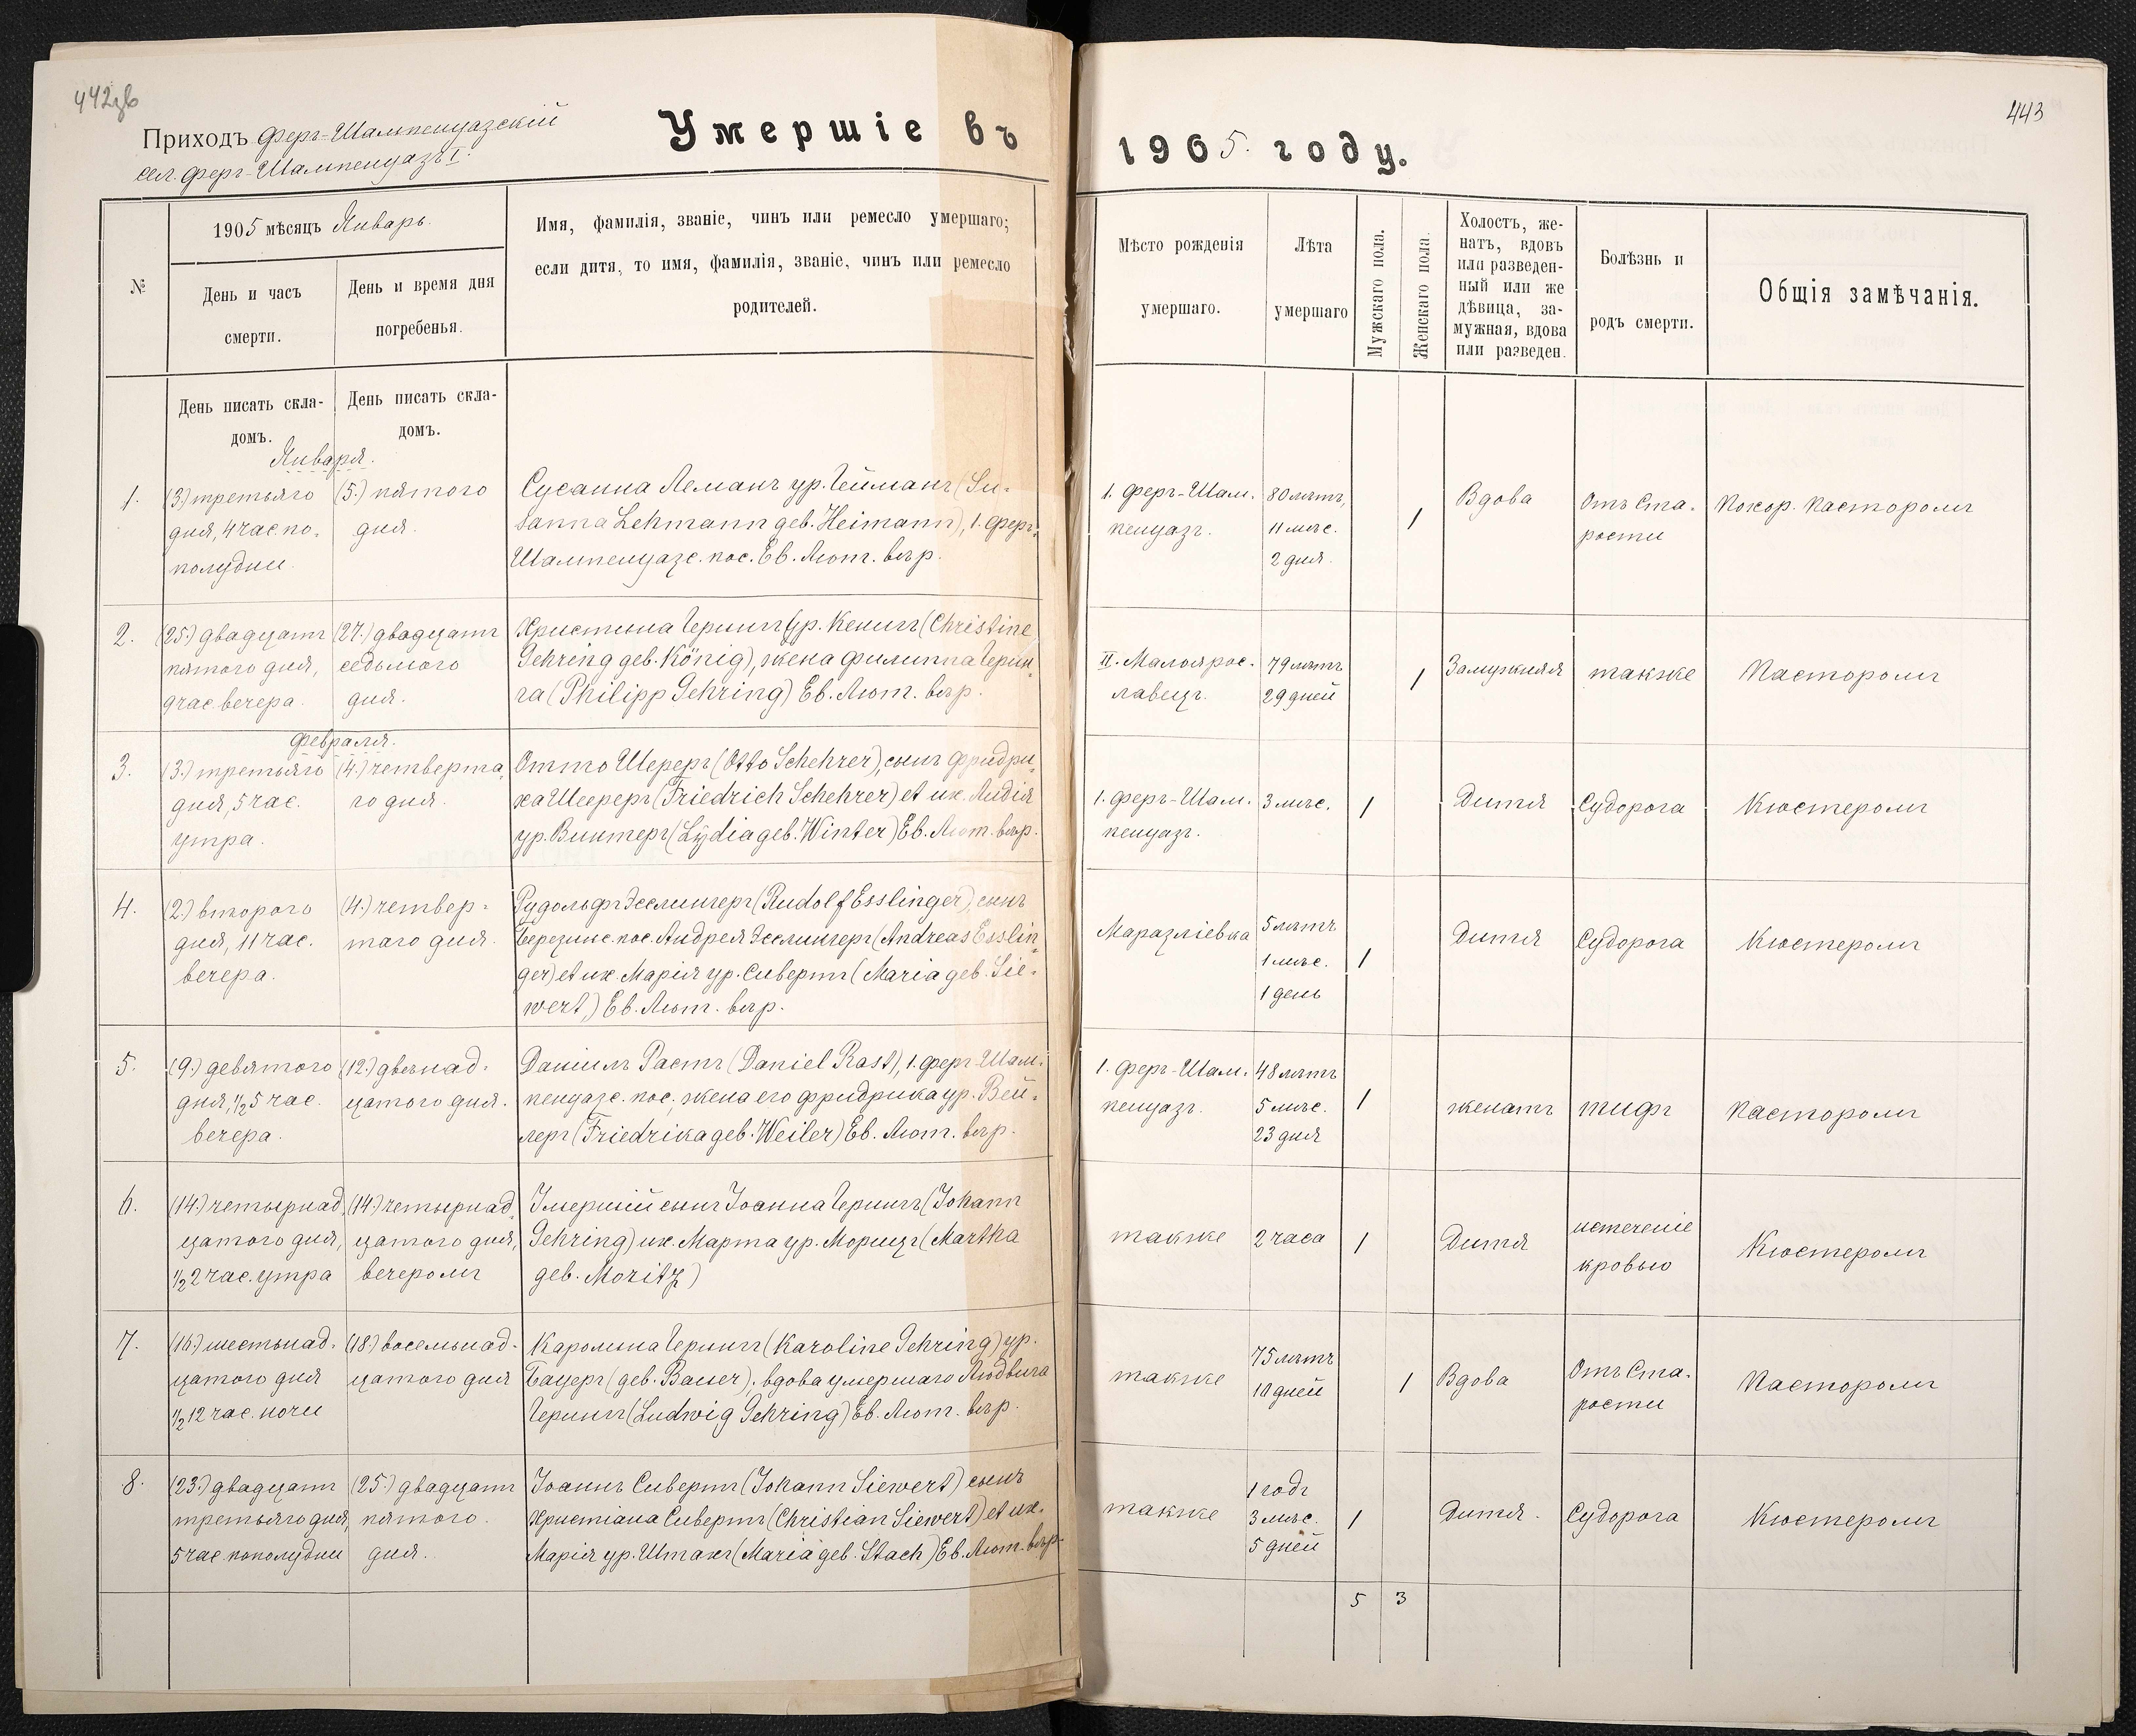 442зв
443
Приходъ Феръ-Шампенуазскій
сел. Феръ-Шампенуазъ I.
Умершіе въ 1905. году.
№
1905 мѣсяцъ Январь.
День и часъ
смерти.
День и время дня
погребенья.
Имя, фамилія, званіе, чинъ или ремесло умершаго;
если дитя, то имя, фамилія, званіе, чинъ или ремесло
родителей.
Мѣсто рожденія
умершаго.
Лѣта
умершаго
Мужскаго пола.
Женскаго пола.
Холостъ, же-
натъ, вдовъ
или разведен-
ный или же
дѣвица, за-
мужная, вдова
или разведен.
Болѣзнь и
родъ смерти.
Общія замѣчанія.
День писать скла-
домъ.
День писать скла-
домъ.
Января.
1.
(3.) третьяго
дня, 4 час. по-
полудни.
(5.) пятого
дня.
Сусанна Леманъ ур. Гейманъ (Su-
sanna Lehmann geb. Heimann), 1. Феръ-
Шампенуазс. пос. Ев. Лют. вѣр.
1. Феръ-Шам-
пенуазъ.
80 лѣтъ,
11 мѣс.
2 дня.
1
Вдова
Отъ Ста-
рости
Похор. Пасторомъ
2.
(25.) двадцать
пятого дня,
9 час. вечера.
(27.) двадцать
седьмого
дня.
Христина Герингъ ур. Кенигъ (Christine
Gehring geb. König), жена Филиппа Герин-
га (Philipp Gehring) Ев. Лют. вѣр.
II. Малояросл-
лавецъ.
79 лѣтъ
29 дней
1
Замужняя
также
Пасторомъ
Февраля.
3.
(3.) третьяго
дня, 5 час.
утра.
(4.) четверта-
го дня.
Отто Шереръ (Otto Schehrer), сынъ Фридри-
ха Шереръ (Friedrich Schehrer) et их. Лидія
ур. Винтеръ (Lÿdia geb. Winter) Ев. Лют. вѣр.
1. Феръ-Шам-
пенуазъ.
3 мѣс.
1
Дитя
Судорога
Кюстеромъ
4.
(2.) второго
дня, 11 час.
вечера.
(4.) четвер-
таго дня.
Рудольфъ Эсслингеръ (Rudolf Esslinger), сынъ
Березинс. пос. Андрея Эсслингеръ (Andreas Esslin-
ger) et их. Марія ур. Сивертъ (Maria geb. Sie-
wert) Ев. Лют. вѣр.
Маразліевка
5 лѣтъ
1 мѣс.
1 день
1
Дитя
Судорога
Кюстеромъ
5.
(9.) девятого
дня, 1/2 5 час.
вечера.
(12.) двѣнад-
цатого дня.
Даніилъ Растъ (Daniel Rast), 1. Феръ-Шам-
пенуазс. пос., жена его Фридрика ур. Вей-
леръ (Friedrika geb. Weiler) Ев. Лют. вѣр.
1. Феръ-Шам-
пенуазъ.
48 лѣтъ
5 мѣс.
23 дня
1
женатъ
тифъ
Пасторомъ
6.
(14.) четырнад-
цатого дня,
1/2 2 час. утра
(14.) четырнад-
цатого дня,
вечеромъ
Умершій сынъ Іоанна Герингъ (Johann
Gehring) их. Марта ур. Морицъ (Martha
geb. Moritz)
также
2 часа
1
Дитя
истеченіе
кровью
Кюстеромъ
7.
(16.) шестьнад-
цатого дня
1/2 12 час. ночи
(18.) восемьнад-
цатого дня
Каролина Герингъ (Karoline Gehring) ур.
Бауеръ (geb. Bauer), вдова умершаго Людвига
Герингъ (Ludwig Gehring) Ев. Лют. вѣр.
также
75 лѣтъ
10 дней
1
Вдова
Отъ Ста-
рости
Пасторомъ
8.
(23.) двадцать
третьяго дня,
5 час. пополудни
(25.) двадцать
пятого.
дня.
Іоаннъ Сивертъ (Johann Siewert) сынъ
Христіана Сивертъ (Christian Siewert) et их.
Марія ур. Штахъ (Maria geb. Stach) Ев. Лют. вѣр.
также
1 годъ
3 мѣс.
5 дней
1
Дитя.
Судорога
Кюстеромъ
5 3